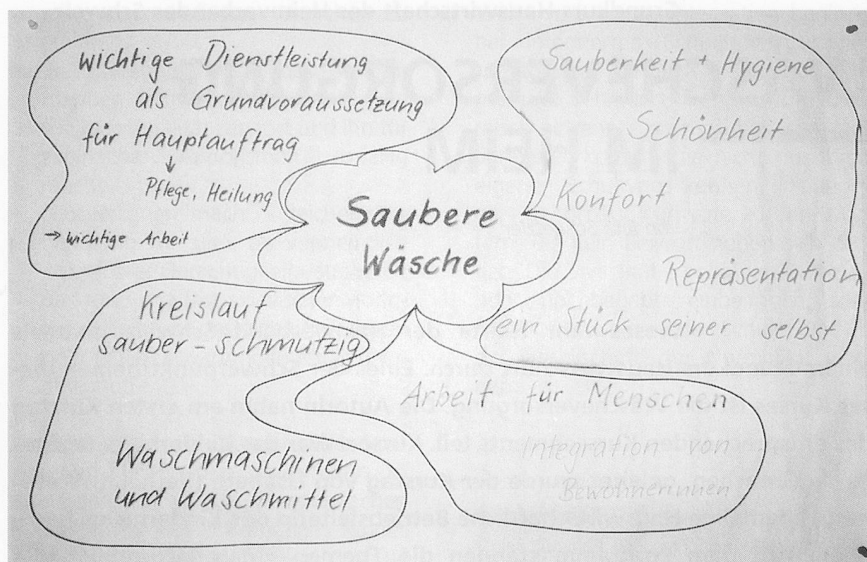 wichtige Dienstleistung
als Grundvoraussetzung
für Hauptauftrag
↓
Pflege, Heilung
→ wichtige Arbeit
Sauberkeit + Hygiene
Schönheit
Konfort
Repräsentation
ein Stück seiner selbst
Saubere
Wäsche
Kreislauf
sauber - schmutzig
Waschmaschinen
und Waschmittel
Arbeit für Menschen
Integration von
Bewohnerinnen